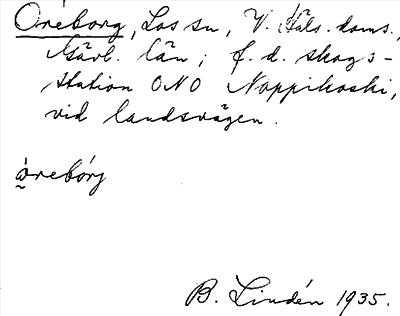 Öreborg, Los sn, V. Häls. doms.,
Gävl. län; f. d. skogs-
station ONO Noppikoski,
vid landsvägen.
å̰rebórg
B. Lindén 1935.